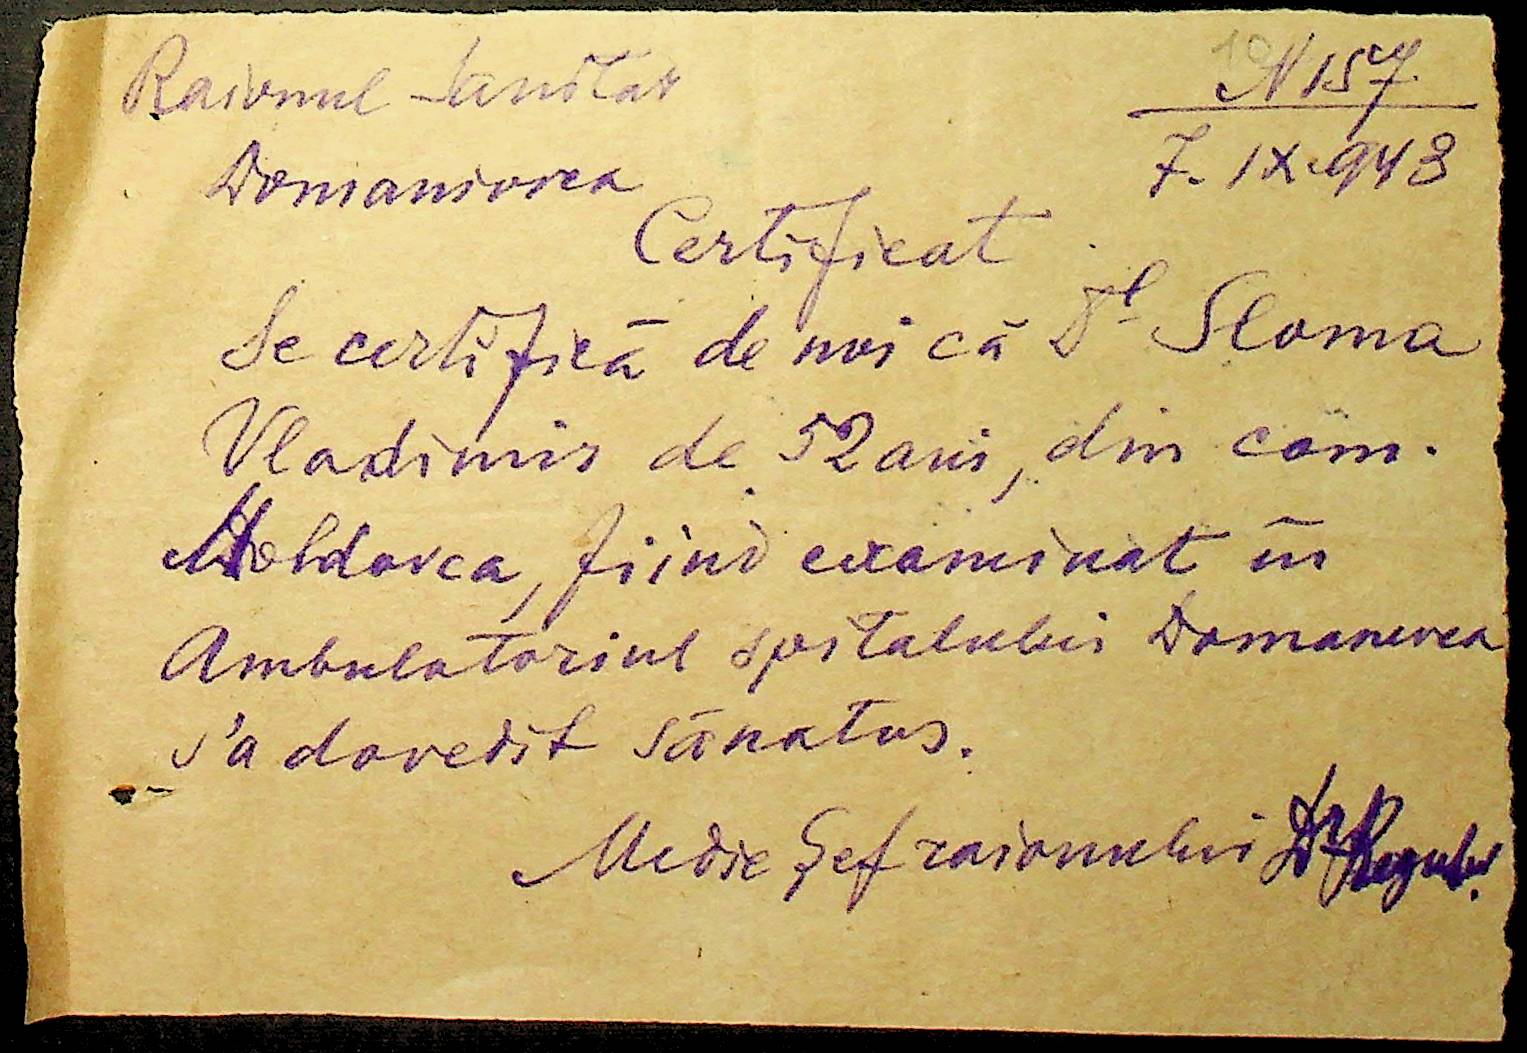 Raionul Sanitar
N 157
Domaniovca
7. IX. 943
Certificat
Se certifică de noi că Dl Sloma
Vladimir de 52 ani, din com.
Moldovca, fiind examinat în
Ambulatoriul spitalului Domanevca
s'a dovedit sănatos.
Medic Șef raionului Dr